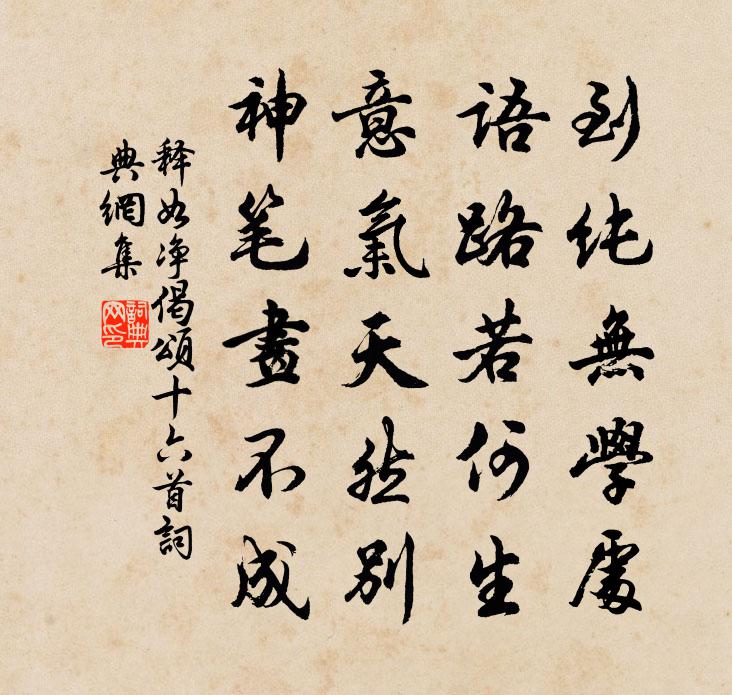 到純無學處
語路若何生
意氣天然別
神笔畫不成
释如净偈頌十六首詞
典網集
詞典網印